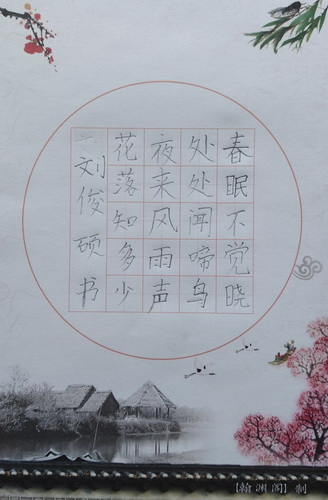 春眠不觉晓
处处闻啼鸟
夜来风雨声
花落知多少
刘俊硕书
【翰渊阁】制